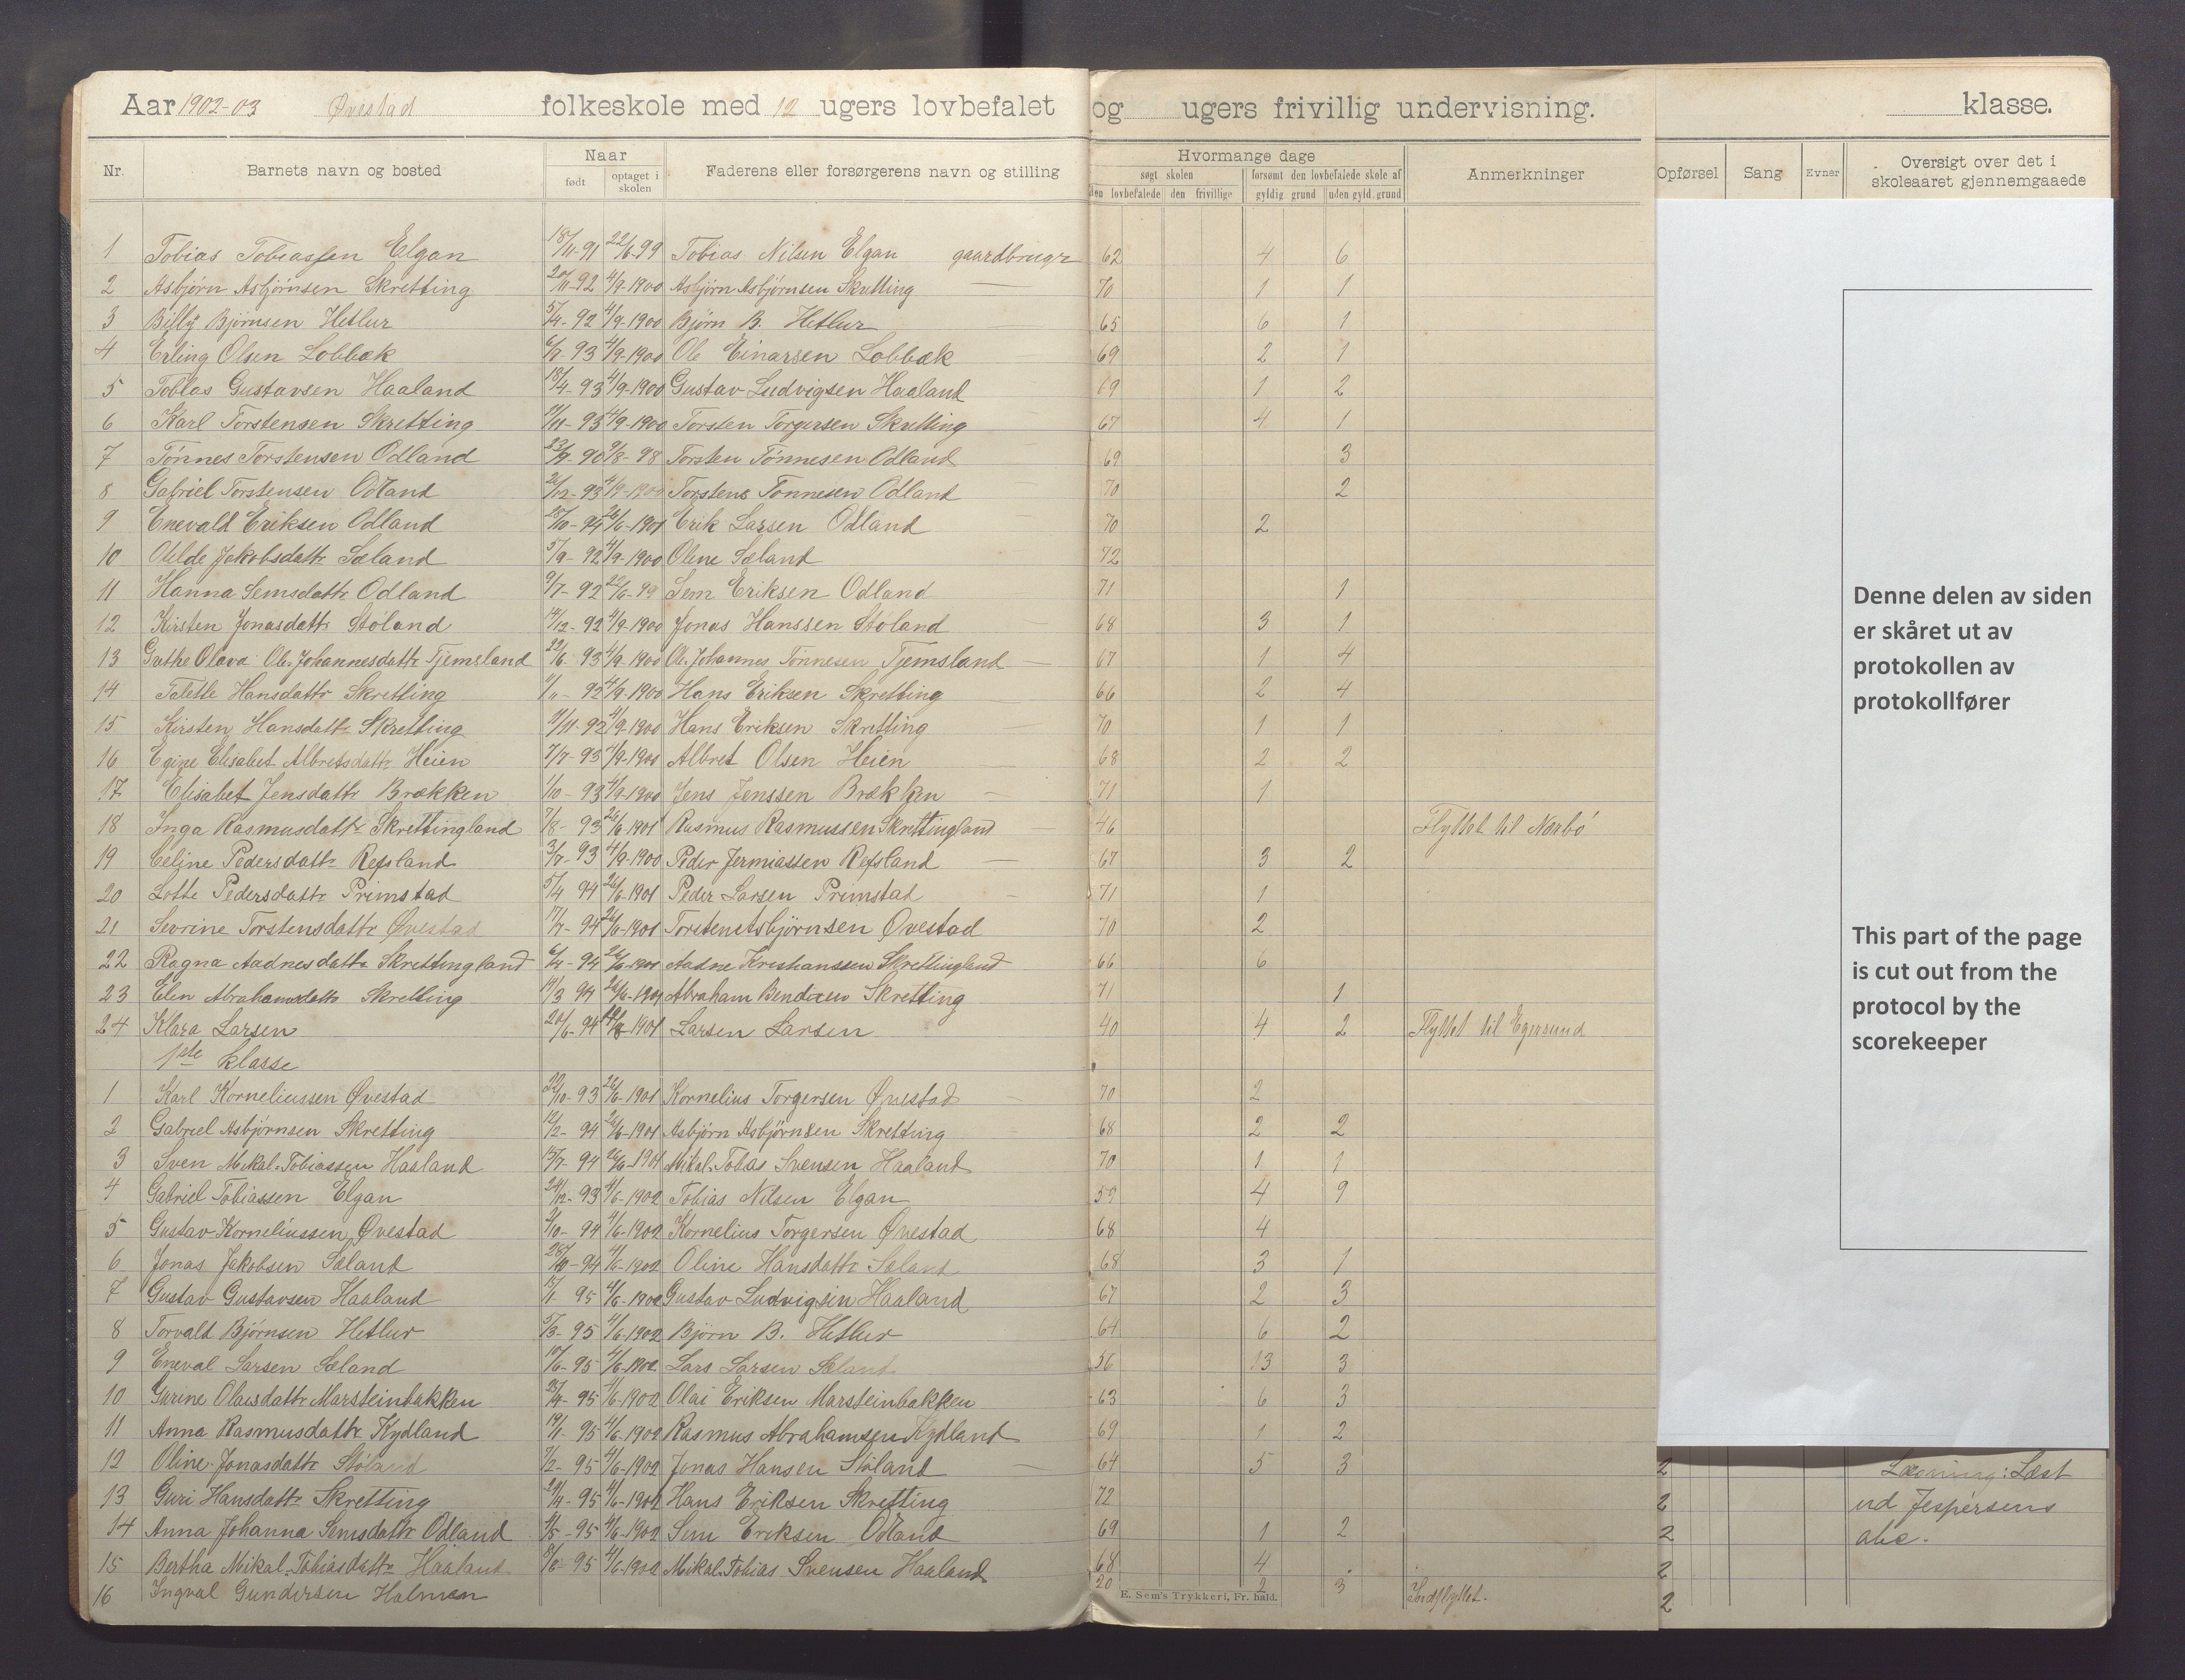 Aar 1902-03 Øvestad folkeskole med 12 ugers lovbefalet og ugers frivillig undervisning. klasse.
Nr. Barnets navn og bosted Naar født optaget i skolen Faderens eller forsørgerens navn og stilling Hvormange dage søgt skolen den lovbefalede den frivillige forsømt den lovbefalede skole af gyldig grund uden gyld. grund Anmerkninger Opførsel Sang Evner Oversigt over det i skoleaaret gjennemgaaede
1 Tobias Tobiassen Elgan 18/11-91 22/6-99 Tobias Nilsen Elgan gaardbruger 62 4 6
2 Asbjørn Asbjørnsen Skretting 20/11-92 4/9-1900 Asbjørn Asbjørnsen Skretting 70 1 1
3 Billy Bjørnsen Hetlur 5/4-92 4/9-1900 Bjørn B. Hetlur 65 6 1
4 Erling Olsen Lobbæk 6/7-93 4/9-1900 Ole Einarsen Lobbæk 69 2 1
5 Tobias Gustavsen Haaland 18/4-93 4/9-1900 Gustav Ludvigsen Haaland 69 1 2
6 Karl Torstensen Skretting 11/11-93 4/9-1900 Torsten Torgersen Skretting 67 4 1
7 Tønnes Torstensen Odland 23/9-90 9/8-98 Torsten Tønnesen Odland 69 3
8 Gabriel Torstensen Odland 21/12-93 4/9-1900 Torstens Tønnesen Odland 70 2
9 Enevald Eriksen Odland 28/10-94 26/6-1901 Erik Larsen Odland 70 2
10 Otelde Jakobsdattr Sæland 5/9-92 4/9-1900 Oline Sæland 72
11 Hanna Semsdattr Odland 9/7-92 22/6-99 Sem Eriksen Odland 71 1
12 Kirsten Jonasdattr Støland 14/12-92 4/9-1900 Jonas Hanssen Støland 68 3 1
13 Grethe Olava Ole-Johannesdattr Tjemsland 22/6-93 4/9-1900 Ole Johannes Tønnesen Tjemsland 67 1 4
14 Taletle Hansdattr Skretting 92 4/9-1900 Hans Eriksen Skretting 66 2 4
15 Kirsten Hansdattr Skretting 11/11-92 4/9-1900 Hans Eriksen Skretting 70 1 1
16 Egine Elisabet Albretsdattr Heien 7/7-93 4/9-1900 Albret Olsen Heien 68 2 2
17 Elisabet Jensdattr Brækken 1/10-93 4/9-1900 Jens Jenssen Brækken 71 1
18 Inga Rasmusdattr Skrettingland 7/8-93 26/6-1901 Rasmus Rasmussen Skrettingland 46 Flyttet til Nærbø
19 Celine Pedersdattr Refsland 3/7-93 4/9-1900 Peder Jermiassen Refsland 67 3 2
20 Lotte Pedersdattr Primstad 5/4 94 26/6-1901 Peder Larsen Primstad 71 1
21 Sevrine Torstensdattr Øvestad 17/7-94 26/6-1901 Torsten Asbjørnsen Øvestad 70 2
22 Ragna Aadnesdattr Skrettingland 6/4-94 26/6-1901 Aadne Kristianssen Skrettingland 66 6
23 Elen Abrahamsdattr Skretting 14/3 94 26/6-1901 Abraham Bendixen Skretting 71 1
24 Klara Larsen 20/6-94 1901 Larsen Larsen 40 4 2 Flyttet til Egersund
1ste klasse
1 Karl Korneliussen Øvestad 22/10-93 26/6-1901 Kornelius Torgersen Øvestad 70 2
2 Gabriel Asbjørnsen Skretting 12/2-94 26/6-1901 Asbjørn Asbjørnsen Skretting 68 2 2
3 Sven Mikal-Tobiassen Haaland 15/7-94 26/6-1901 Mikal-Tobias Svensen Haaland 70 1 1
4 Gabriel Tobiassen Elgan 24/12-93 4/6-1902 Tobias Nilsen Elgan 59 4 9
5 Gustav Korneliussen Øvestad 2/10-94 4/6-1902 Kornelius Torgersen Øvestad 68 4
6 Jonas Jakobsen Sæland 28/10-94 4/6-1902 Oline Hansdattr Sæland 68 3 1
7 Gustav Gustavsen Haaland 15/1 95 4/6-1902 Gustav Ludvigsen Haaland 67 2 3
8 Torvald Bjørnsen Hetlur 5/3-95 4/6-1902 Bjørn B. Hetlur 64 6 2
9 Eneval Larsen Sæland 10/6-95 4/6-1902 Lars Larsen Sæland 56 13 3
10 Gurine Olaisdattr Marsteinbakken 25/4-95 4/6-1902 Olai Eriksen Marsteinbakken 63 6 3
11 Anna Rasmusdattr Kydland 19/1-95 4/6-1902 Rasmus Abrahamsen Kydland 69 1 2
12 Oline Jonasdattr Støland 7/2-95 4/6-1902 Jonas Hansen Støland 64 5 3 2 Læsning: Læst
13 Guri Hansdattr Skretting 29/4-95 4/6-1902 Hans Eriksen Skretting 72 2 ud Jespersens
14 Anna Johanna Semsdattr Odland 4/5-95 4/6-1902 Sem Eriksen Odland 69 1 2 2 abc.
15 Bertha Mikal-Tobiasdattr Haaland 95 4/6-1902 Mikal-Tobias Svensen Haaland 68 4 2
16 Ingval Gundersen Holmen 20 2 3 Indflyttet. 2
E. Sem's Trykkeri, Fr. hald.
Denne delen av siden
er skåret ut av
protokollen av
protokollfører
This part of the page
is cut out from the
protocol by the
scorekeeper